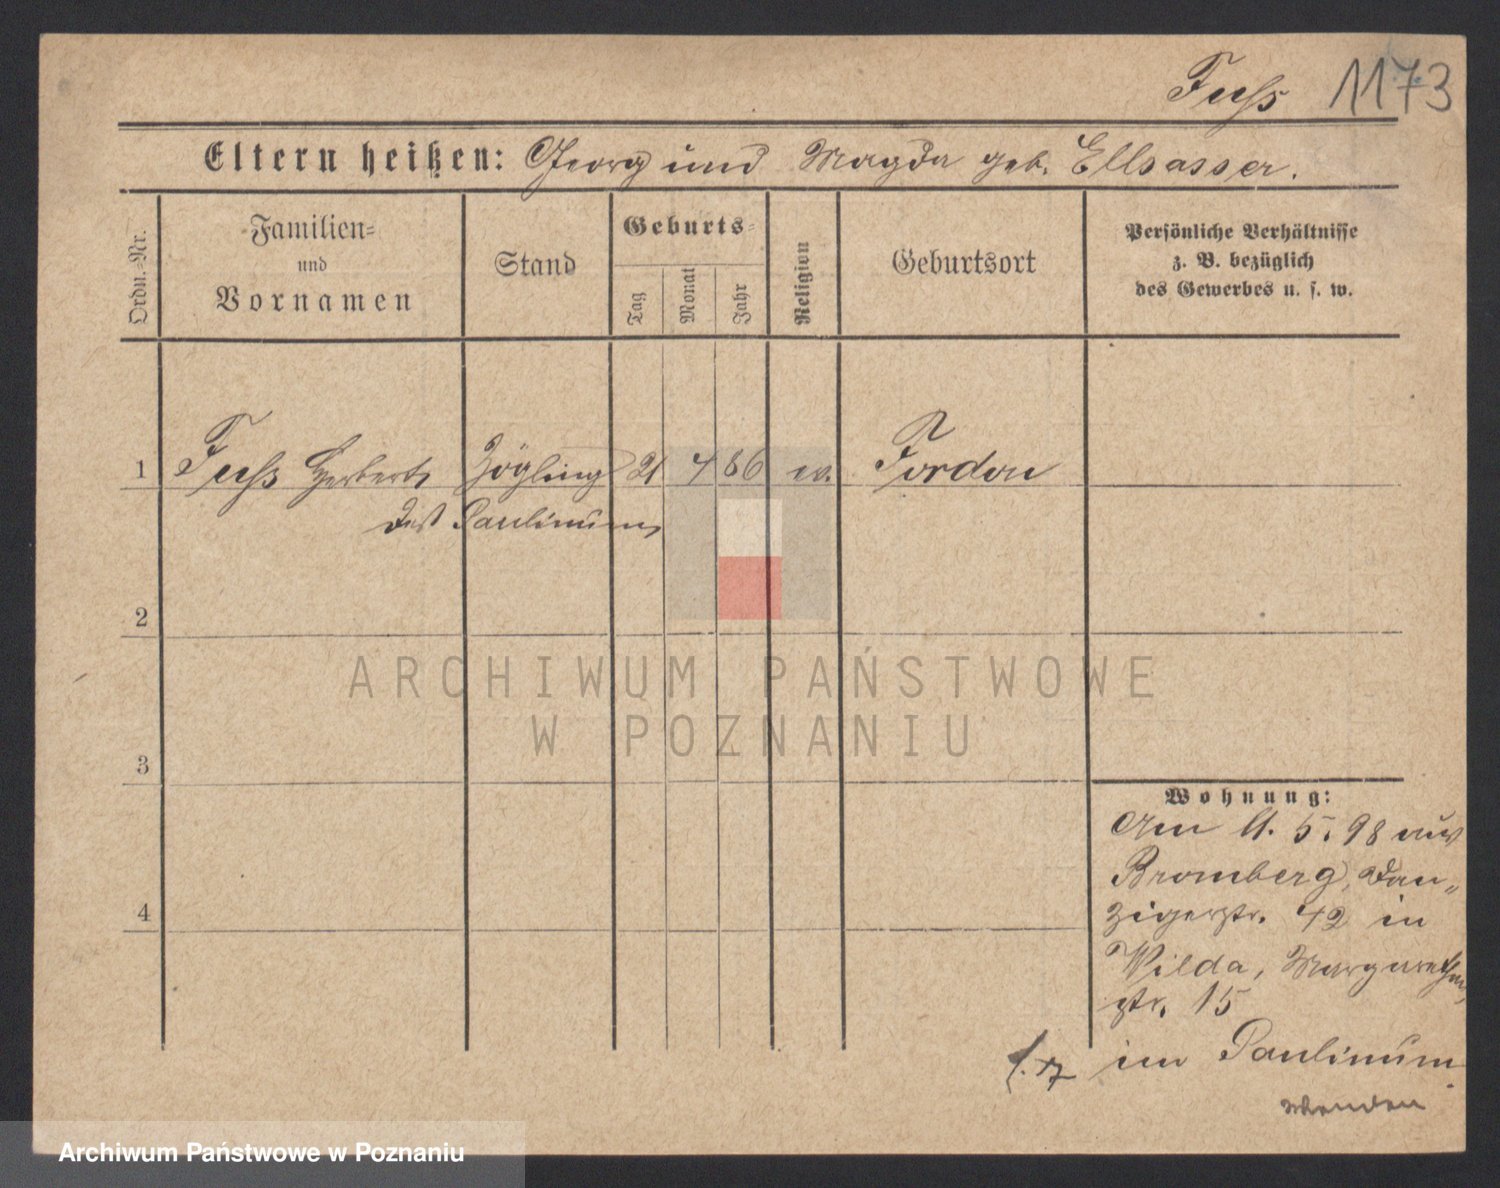 Fuß 1173
Eltern heißen: Georg und Magda geb. Ellsasser.
Ordn.-Nr.
Familien-
und
Vornamen
Stand
Geburts-
Tag
Monat
Jahr
Religion
Geburtsort
Persönliche Verhältnisse
z. B. bezüglich
des Gewerbes u. s. w.
1 Fuß Herbert Zögling 21 4 86 ev. Fordon
Paulinums
2
ARCHIWUM PAŃSTWOWE
W POZNANIU
3
Wohnung:
Am 11. 5. 98 aus
Bromberg, Dan-
zigerstr. 42 in
Wilda, Margarethen
str. 15
im Paulinum.
wenden
4
Archiwum Państwowe w Poznaniu